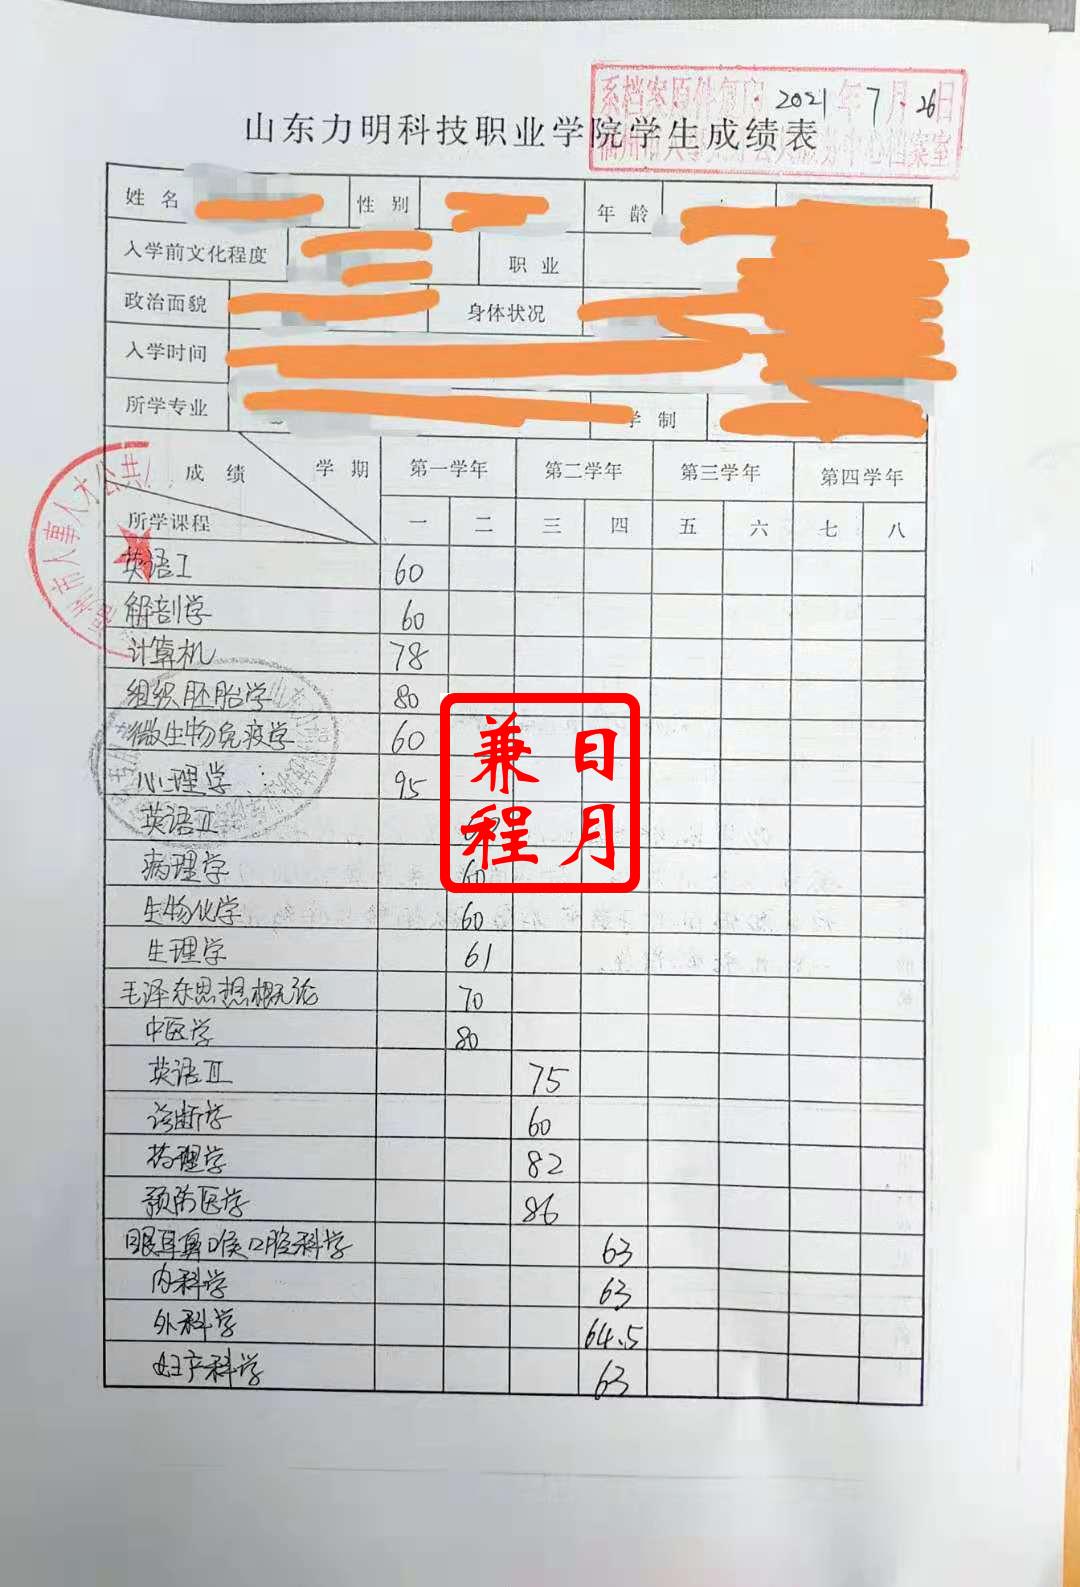 系档案原件复印 2021年7月26日
山东力明科技职业学院学生成绩表
姓名 性别 年龄
入学前文化程度 职业
政治面貌 身体状况
入学时间
所学专业 学制
成绩 学期 第一学年 第二学年 第三学年 第四学年
所学课程 一 二 三 四 五 六 七 八
英语I 60
解剖学 60
计算机 78
组织胚胎学 80
微生物免疫学 60
心理学 95
英语II
病理学 60
生物化学 60
生理学 61
毛泽东思想概论 70
中医学 80
英语III 75
诊断学 60
药理学 82
预防医学 86
眼耳鼻喉口腔科学 63
内科学 63
外科学 64.5
妇产科学 63
市人事人才公共
日月
兼程